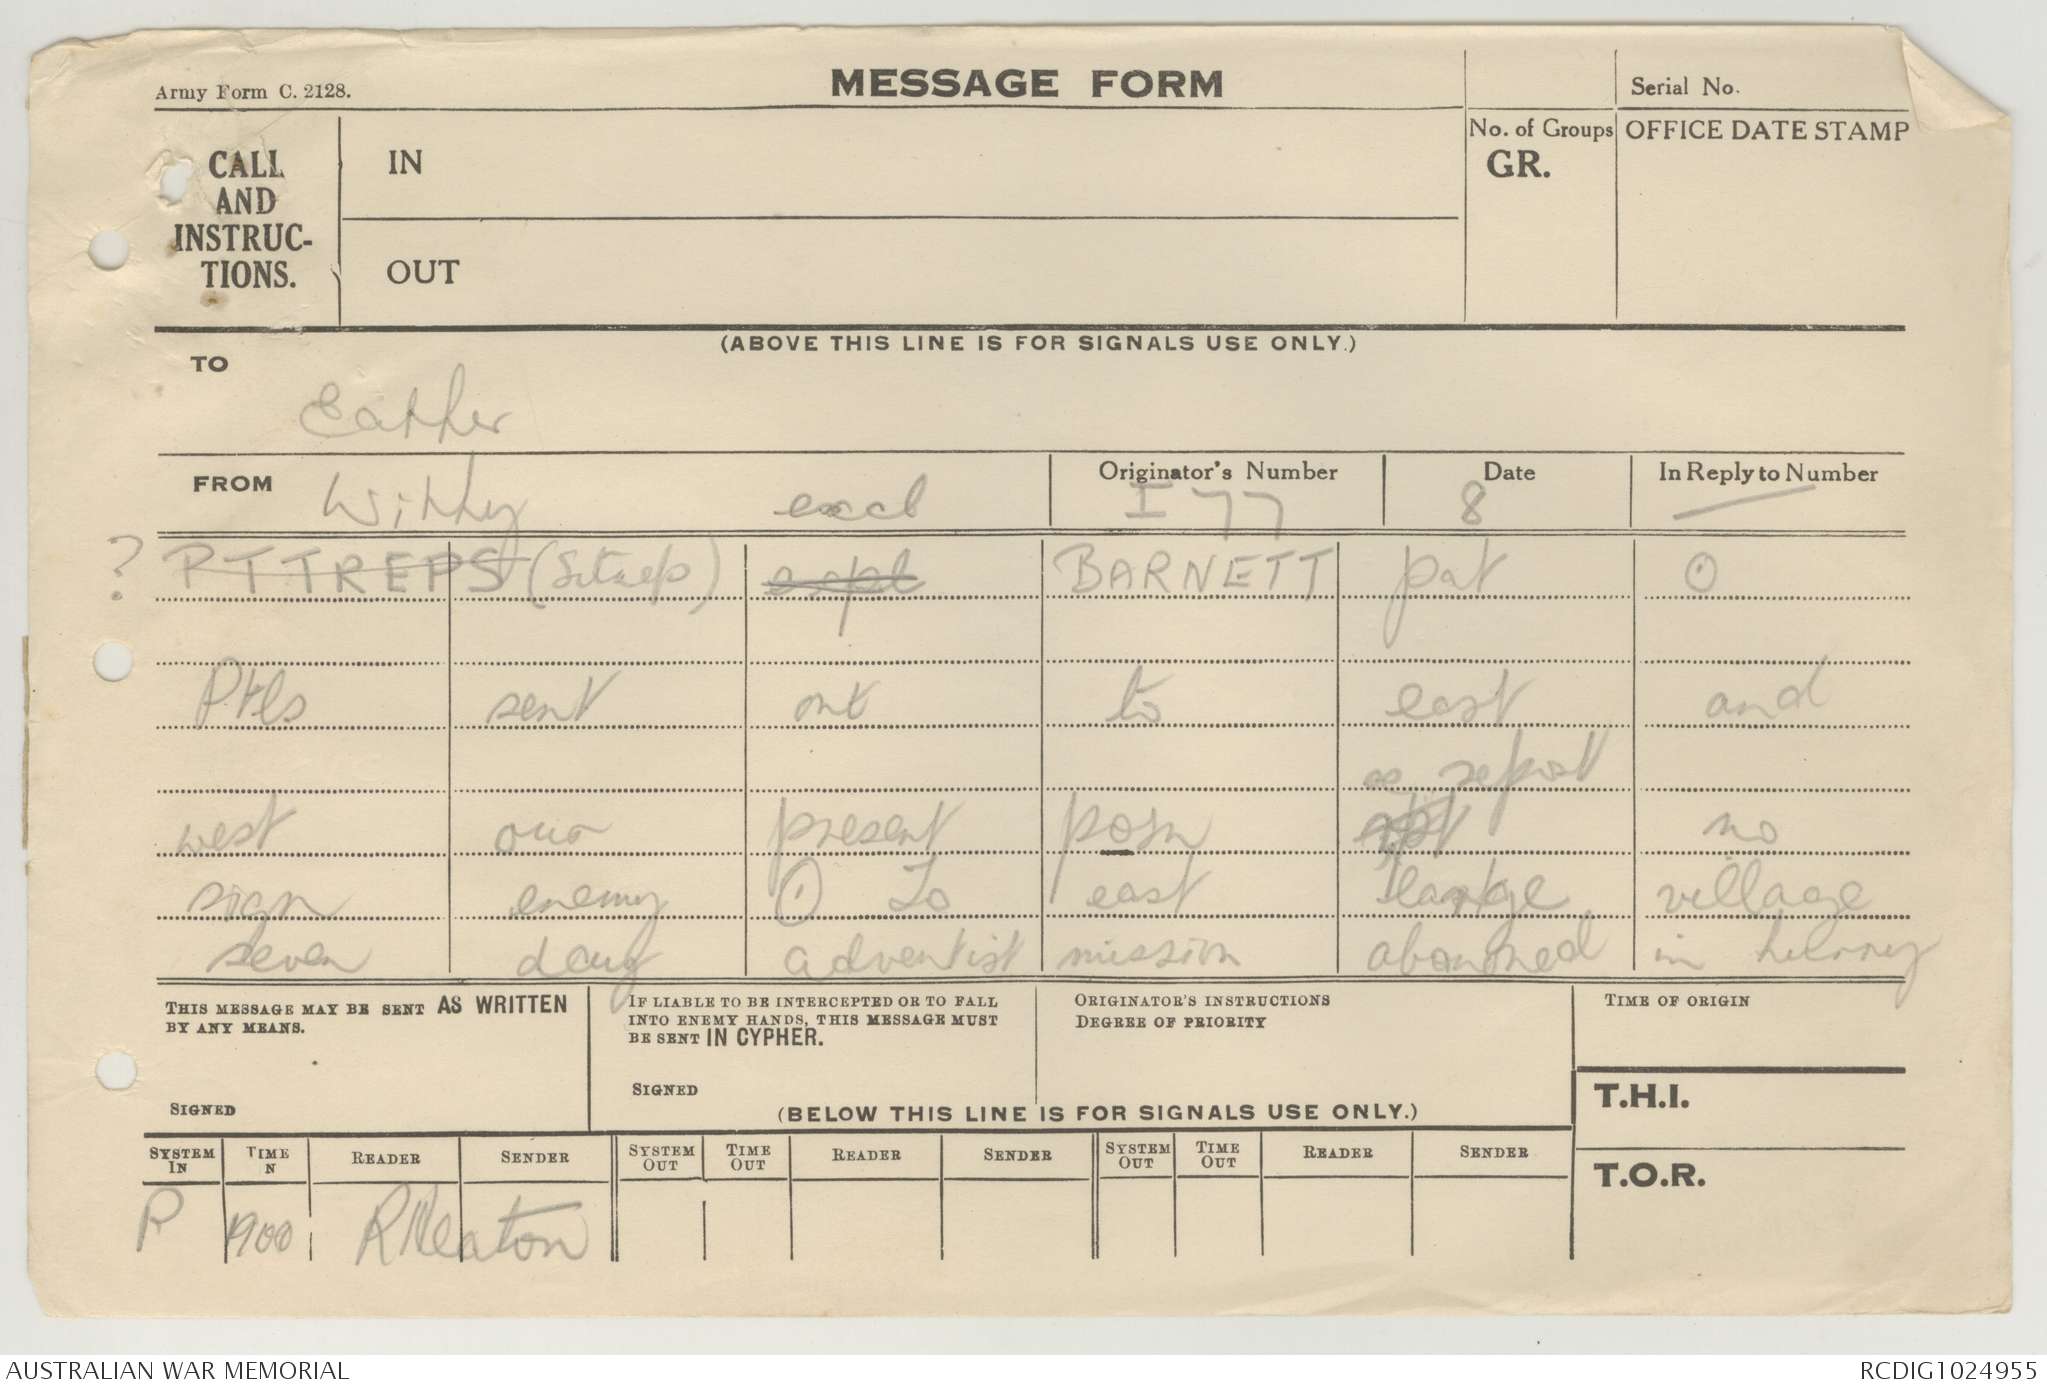 Army Form C. 2128.
MESSAGE FORM
Serial No.
CALL AND INSTRUC-TIONS.
IN
OUT
No. of Groups
GR.
OFFICE DATE STAMP
(ABOVE THIS LINE IS FOR SIGNALS USE ONLY.)
TO
Eather
FROM
Originator's Number
Date
In Reply to Number
excl
I 77
8
? PTTREPS (Sitreps) BARNETT pat O
Ptls sent out to east and
report
west our present posn no
sign enemy O To east large village
seven day adventist mission in
THIS MESSAGE MAY BE SENT AS WRITTEN BY ANY MEANS.
SIGNED
IF LIABLE TO BE INTERCEPTED OR TO FALL INTO ENEMY HANDS, THIS MESSAGE MUST BE SENT IN CYPHER.
SIGNED
ORIGINATOR'S INSTRUCTIONS
DEGREE OF PRIORITY
TIME OF ORIGIN
T.H.I.
T.O.R.
(BELOW THIS LINE IS FOR SIGNALS USE ONLY.)
SYSTEM IN TIME N READER SENDER SYSTEM OUT TIME OUT READER SENDER SYSTEM OUT TIME OUT READER SENDER
P 1900
AUSTRALIAN WAR MEMORIAL
RCDIG1024955